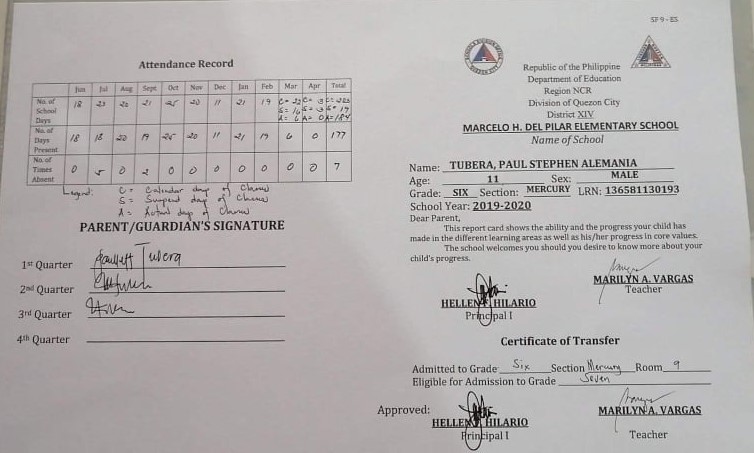 SF 9 - ES
Attendance Record
Jun Jul Aug Sept Oct Nov Dec Jan Feb Mar Apr Total
No. of School Days 18 23 20 21 25 20 11 21 19 C= 22 C= 3 C= 203
S= 16 S= 3 S= 19
A= 6 A= 0 A= 184
No. of Days Present 18 18 20 19 25 20 11 21 19 6 0 177
No. of Times Absent 0 5 0 2 0 0 0 0 0 0 0 7
Legend: C = Calendar day of Classes
S = Suspend day of Classes
A = Actual day of Classes
PARENT/GUARDIAN'S SIGNATURE
1st Quarter Tubera
2nd Quarter
3rd Quarter
4th Quarter
Republic of the Philippine
Department of Education
Region NCR
Division of Quezon City
District XIV
MARCELO H. DEL PILAR ELEMENTARY SCHOOL
Name of School
Name: TUBERA, PAUL STEPHEN ALEMANIA
Age: 11 Sex: MALE
Grade: SIX Section: MERCURY LRN: 136581130193
School Year: 2019-2020
Dear Parent,
This report card shows the ability and the progress your child has
made in the different learning areas as well as his/her progress in core values.
The school welcomes you should you desire to know more about your
child's progress.
HELLEN HILARIO
Principal I
MARILYN A. VARGAS
Teacher
Certificate of Transfer
Admitted to Grade Six Section Mercury Room 9
Eligible for Admission to Grade Seven
Approved:
HELLEN HILARIO
Principal I
MARILYN A. VARGAS
Teacher